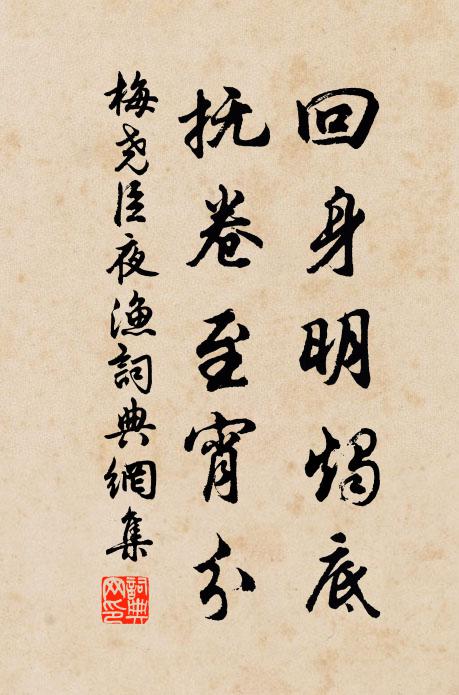 回身明燭底
抚卷至宵分
梅尧臣夜渔詞典網集
詞典網印